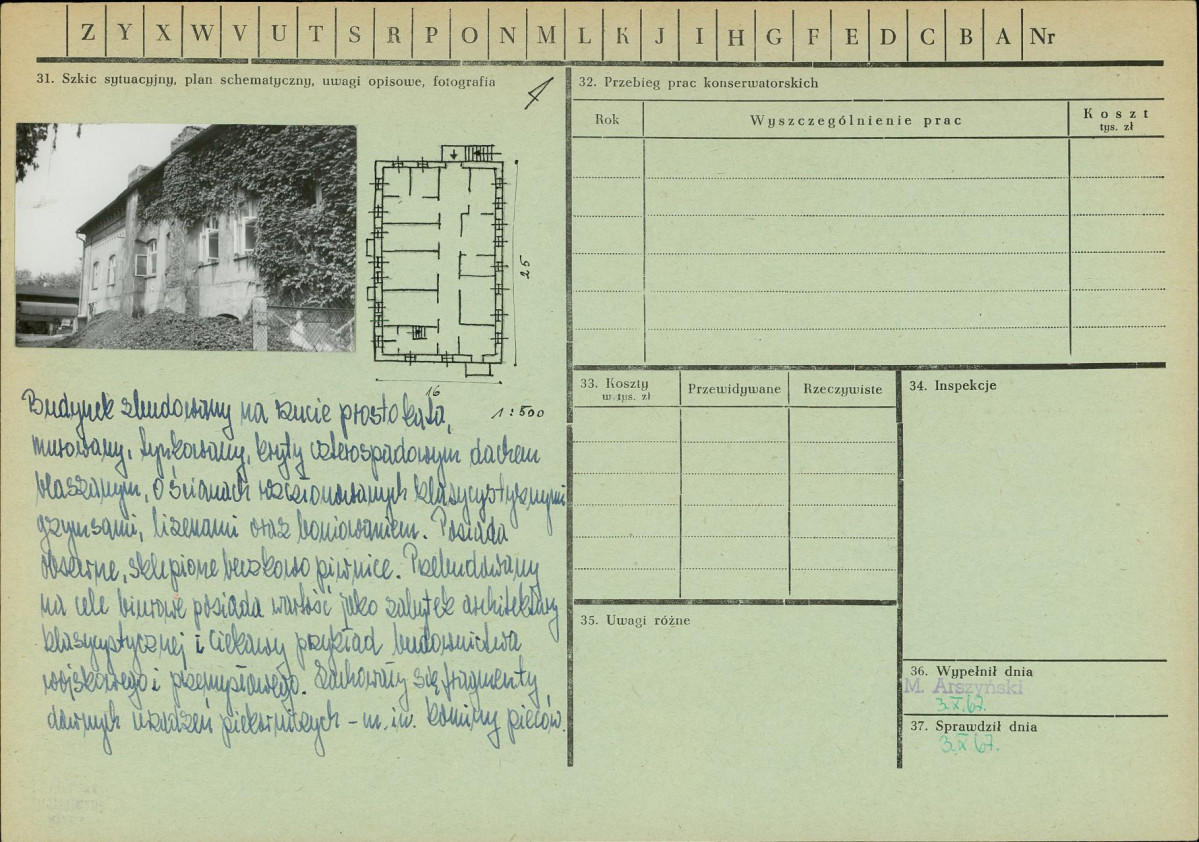 Z Y X W V U T S R P O N M L K J I H G F E D C B A Nr
31. Szkic sytuacyjny, plan schematyczny, uwagi opisowe, fotografia
25
16
1:500
Budynek zbudowany na rzucie prostokąta,
murowany, tynkowany, kryty czterospadowym dachem
blaszanym, o ścianach rozczłonkowanych klasycystycznymi
gzymsami, lizenami oraz boniowaniem. Posiada
obszerne, sklepione beczkowo piwnice. Przebudowany
na cele biurowe posiada wartość jako zabytek architektury
klasycystycznej i ciekawy przykład budownictwa
wojskowego i przemysłowego. Zachowały się fragmenty
dawnych urządzeń piekarniczych – m. in. kominy pieców.
32. Przebieg prac konserwatorskich
Rok
Wyszczególnienie prac
Koszt
tys. zł
33. Koszty
w tys. zł
Przewidywane
Rzeczywiste
34. Inspekcje
35. Uwagi różne
36. Wypełnił dnia
M. Arszyński
3.X.67.
37. Sprawdził dnia
3.X.67.